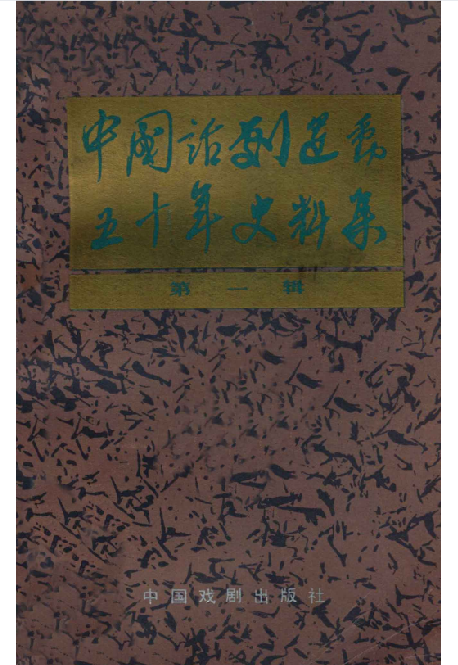 中國话剧运動
五十年史料集
第一辑
中国戏剧出版社